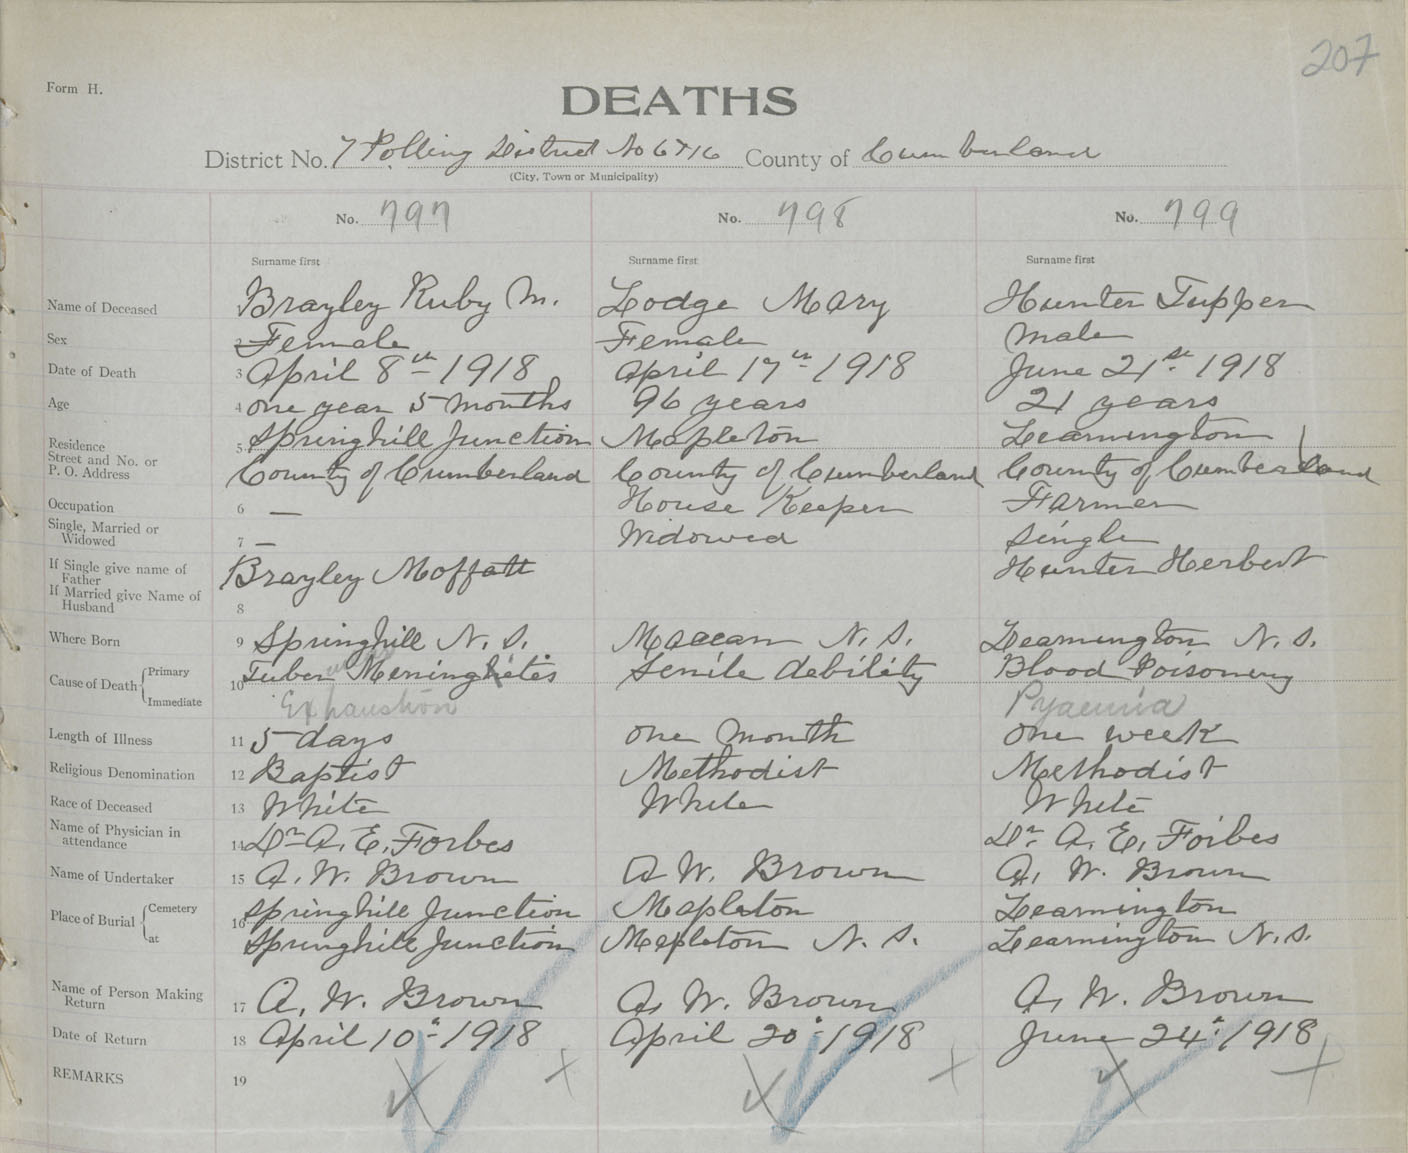 207
Form H.
DEATHS
District No. 7 Polling District No 6 & 16 County of Cumberland
(City, Town or Municipality)
No. 797 No. 798 No. 799
Surname first Surname first Surname first
Name of Deceased Brayley Ruby M. Lodge Mary Hunter Tupper
Sex 2 Female Female Male
Date of Death 3 April 8th 1918 April 17th 1918 June 21st 1918
Age 4 one year 5 months 96 years 21 years
Residence 5 Springhill Junction Mapleton Leamington
Street and No. or
P. O. Address County of Cumberland County of Cumberland County of Cumberland
Occupation 6 — House Keeper Farmer
Single, Married or
Widowed 7 — Widowed Single
If Single give name of
Father Brayley Moffatt Hunter Herbert
If Married give Name of
Husband 8
Where Born 9 Springhill N. S. Maccan N. S. Leamington N. S.
Cause of Death Primary 10 Tuber Meninghitis Senile debility Blood Poisoning
Immediate Exhaustion Pyaemia
Length of Illness 11 5 days one month one week
Religious Denomination 12 Baptist Methodist Methodist
Race of Deceased 13 White White White
Name of Physician in
attendance 14 Dr A. E. Forbes Dr. A. E. Forbes
Name of Undertaker 15 A. W. Brown A W. Brown A. W. Brown
Place of Burial Cemetery 16 Springhill Junction Mapleton Leamington
at Springhill Junction Mapleton N. S. Leamington N. S.
Name of Person Making
Return 17 A. W. Brown A. W. Brown A. W. Brown
Date of Return 18 April 10th 1918 April 20th 1918 June 24th 1918
REMARKS 19